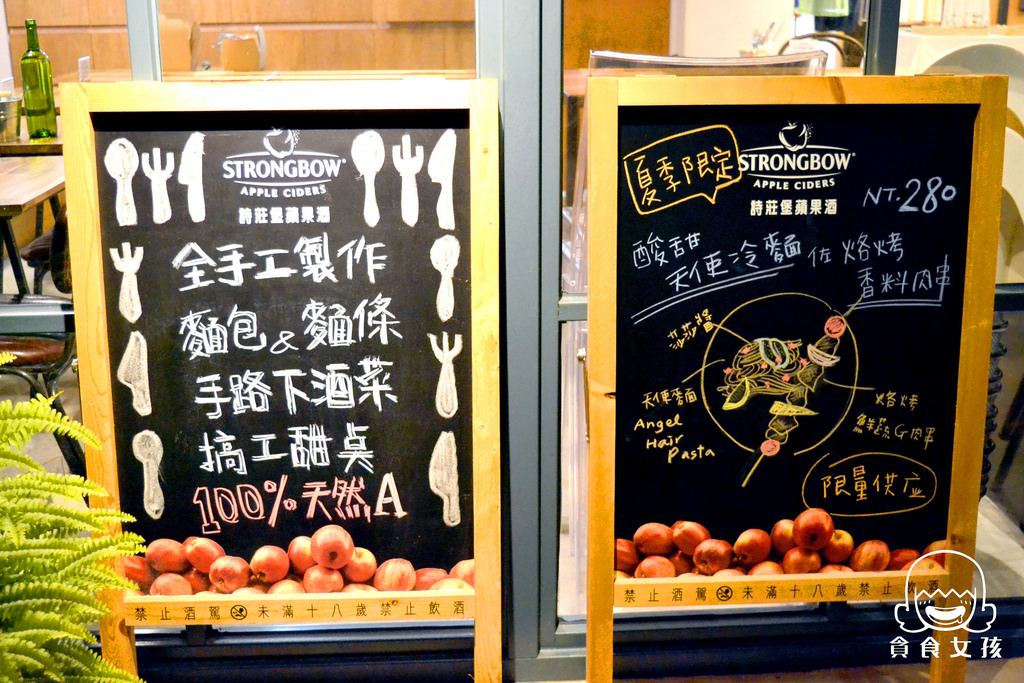 STRONGBOW®
APPLE CIDERS
詩莊堡蘋果酒
全手工製作
麵包&麵條
手路下酒菜
搞工甜桌
100%天然A
禁止酒駕 未滿十八歲禁止飲酒
夏季限定
STRONGBOW®
APPLE CIDERS
詩莊堡蘋果酒
NT.280
酸甜
天使冷麵佐烙烤
香料肉串
莎莎醬
天使麵
Angel
Hair
Pasta
烙烤
鮮蔬&肉串
限量供应
禁止酒駕 未滿十八歲禁止飲酒
貪食女孩